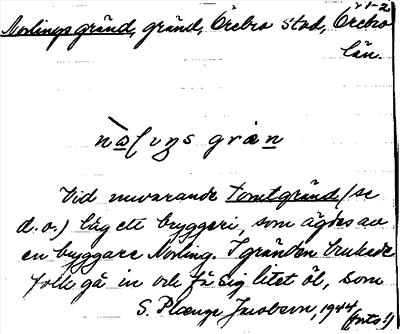 1-2
Norlings gränd, gränd, Örebro stad, Örebro
län.
Vid nuvarande Tomtgränd (se
d.o.) låg ett bryggeri, som ägdes av
en bryggare Norling. I gränden brukade
folk gå in och få sig litet öl, som
S. Plænge Jacobson, 1944 (forts!)